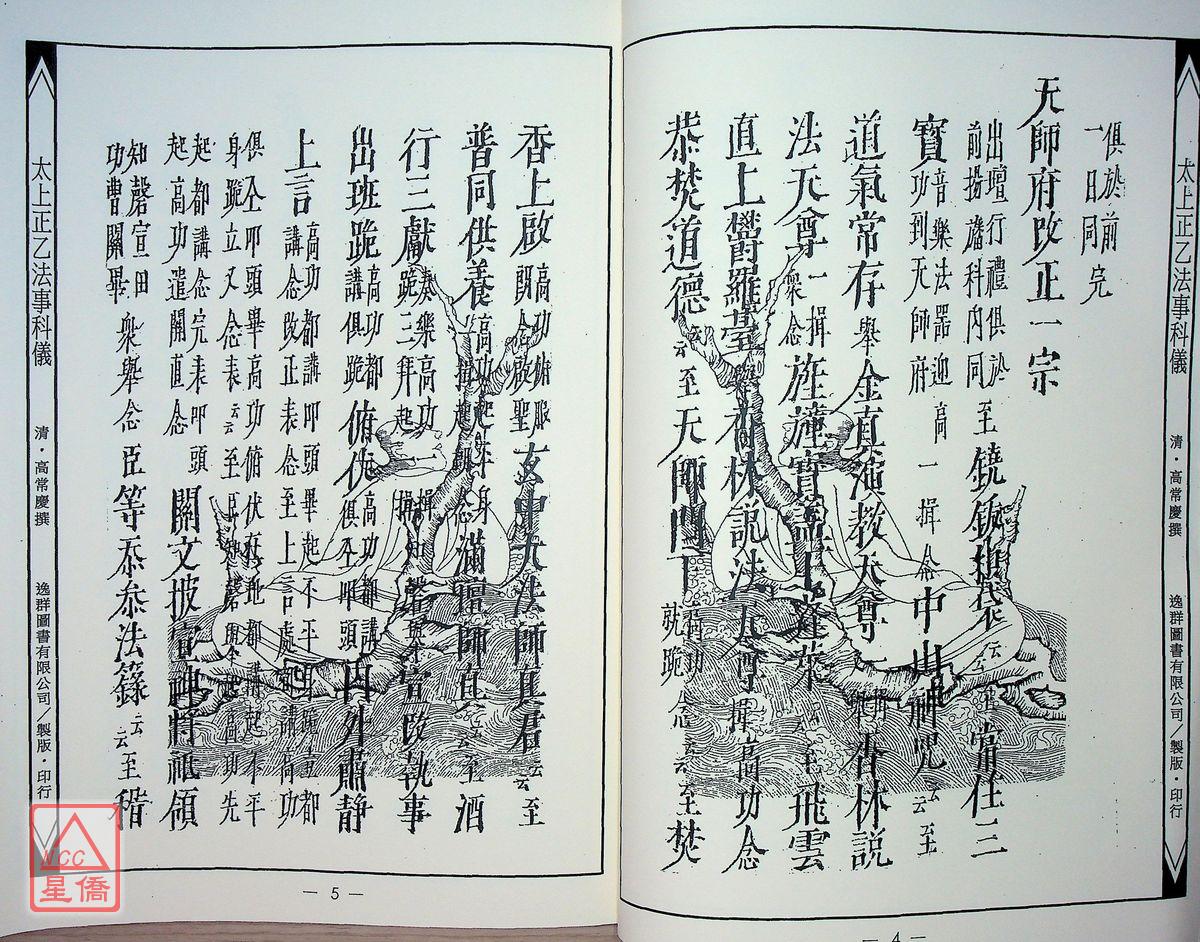 太上正乙法事科儀　清・高常慶撰　逸群圖書有限公司／製版・印行
俱於前
一日同完
天師府改正一宗
出壇行禮俱於
前揚旛科內同
至鐃鈸
云
常住三
寶
音樂法器迎高
功到天師府
一揖念
中山神咒
云云
至
道氣常存
舉
金真演教天尊
香林說
法天尊
一揖
眾念
旌
寶蓋
云
至
飛雲
直上鬱羅臺
香林說法天尊
揖高功念
恭焚道德
云云
至
天師門下
高功
就跪
念
云云
至
焚
— 4 —
香上啟
高功俯服
念啟聖
玄中大法師真君
云云
至
普同供養
高功起
滿
師真
云云
至
酒
行三獻
奏樂高功
跪三拜起
揖
宣改執事
出班跪
高功都
講俱跪
俯伏
高功都講
俱仝叩頭
內外肅靜
上言
高功都講叩頭畢起不平
講念改正表念至上言處
都
高功
俱仝叩頭畢高功俯伏在地都講起不平
身跪立又念表云云至
高功先
起都講念完表叩頭
起高功遣關直念
關文
神將祗領
知磬宣田
功曹關畢
眾舉念
臣等忝參法籙
云云
至
稽
— 5 —
太上正乙法事科儀　清・高常慶撰　逸群圖書有限公司／製版・印行
NCC
星僑